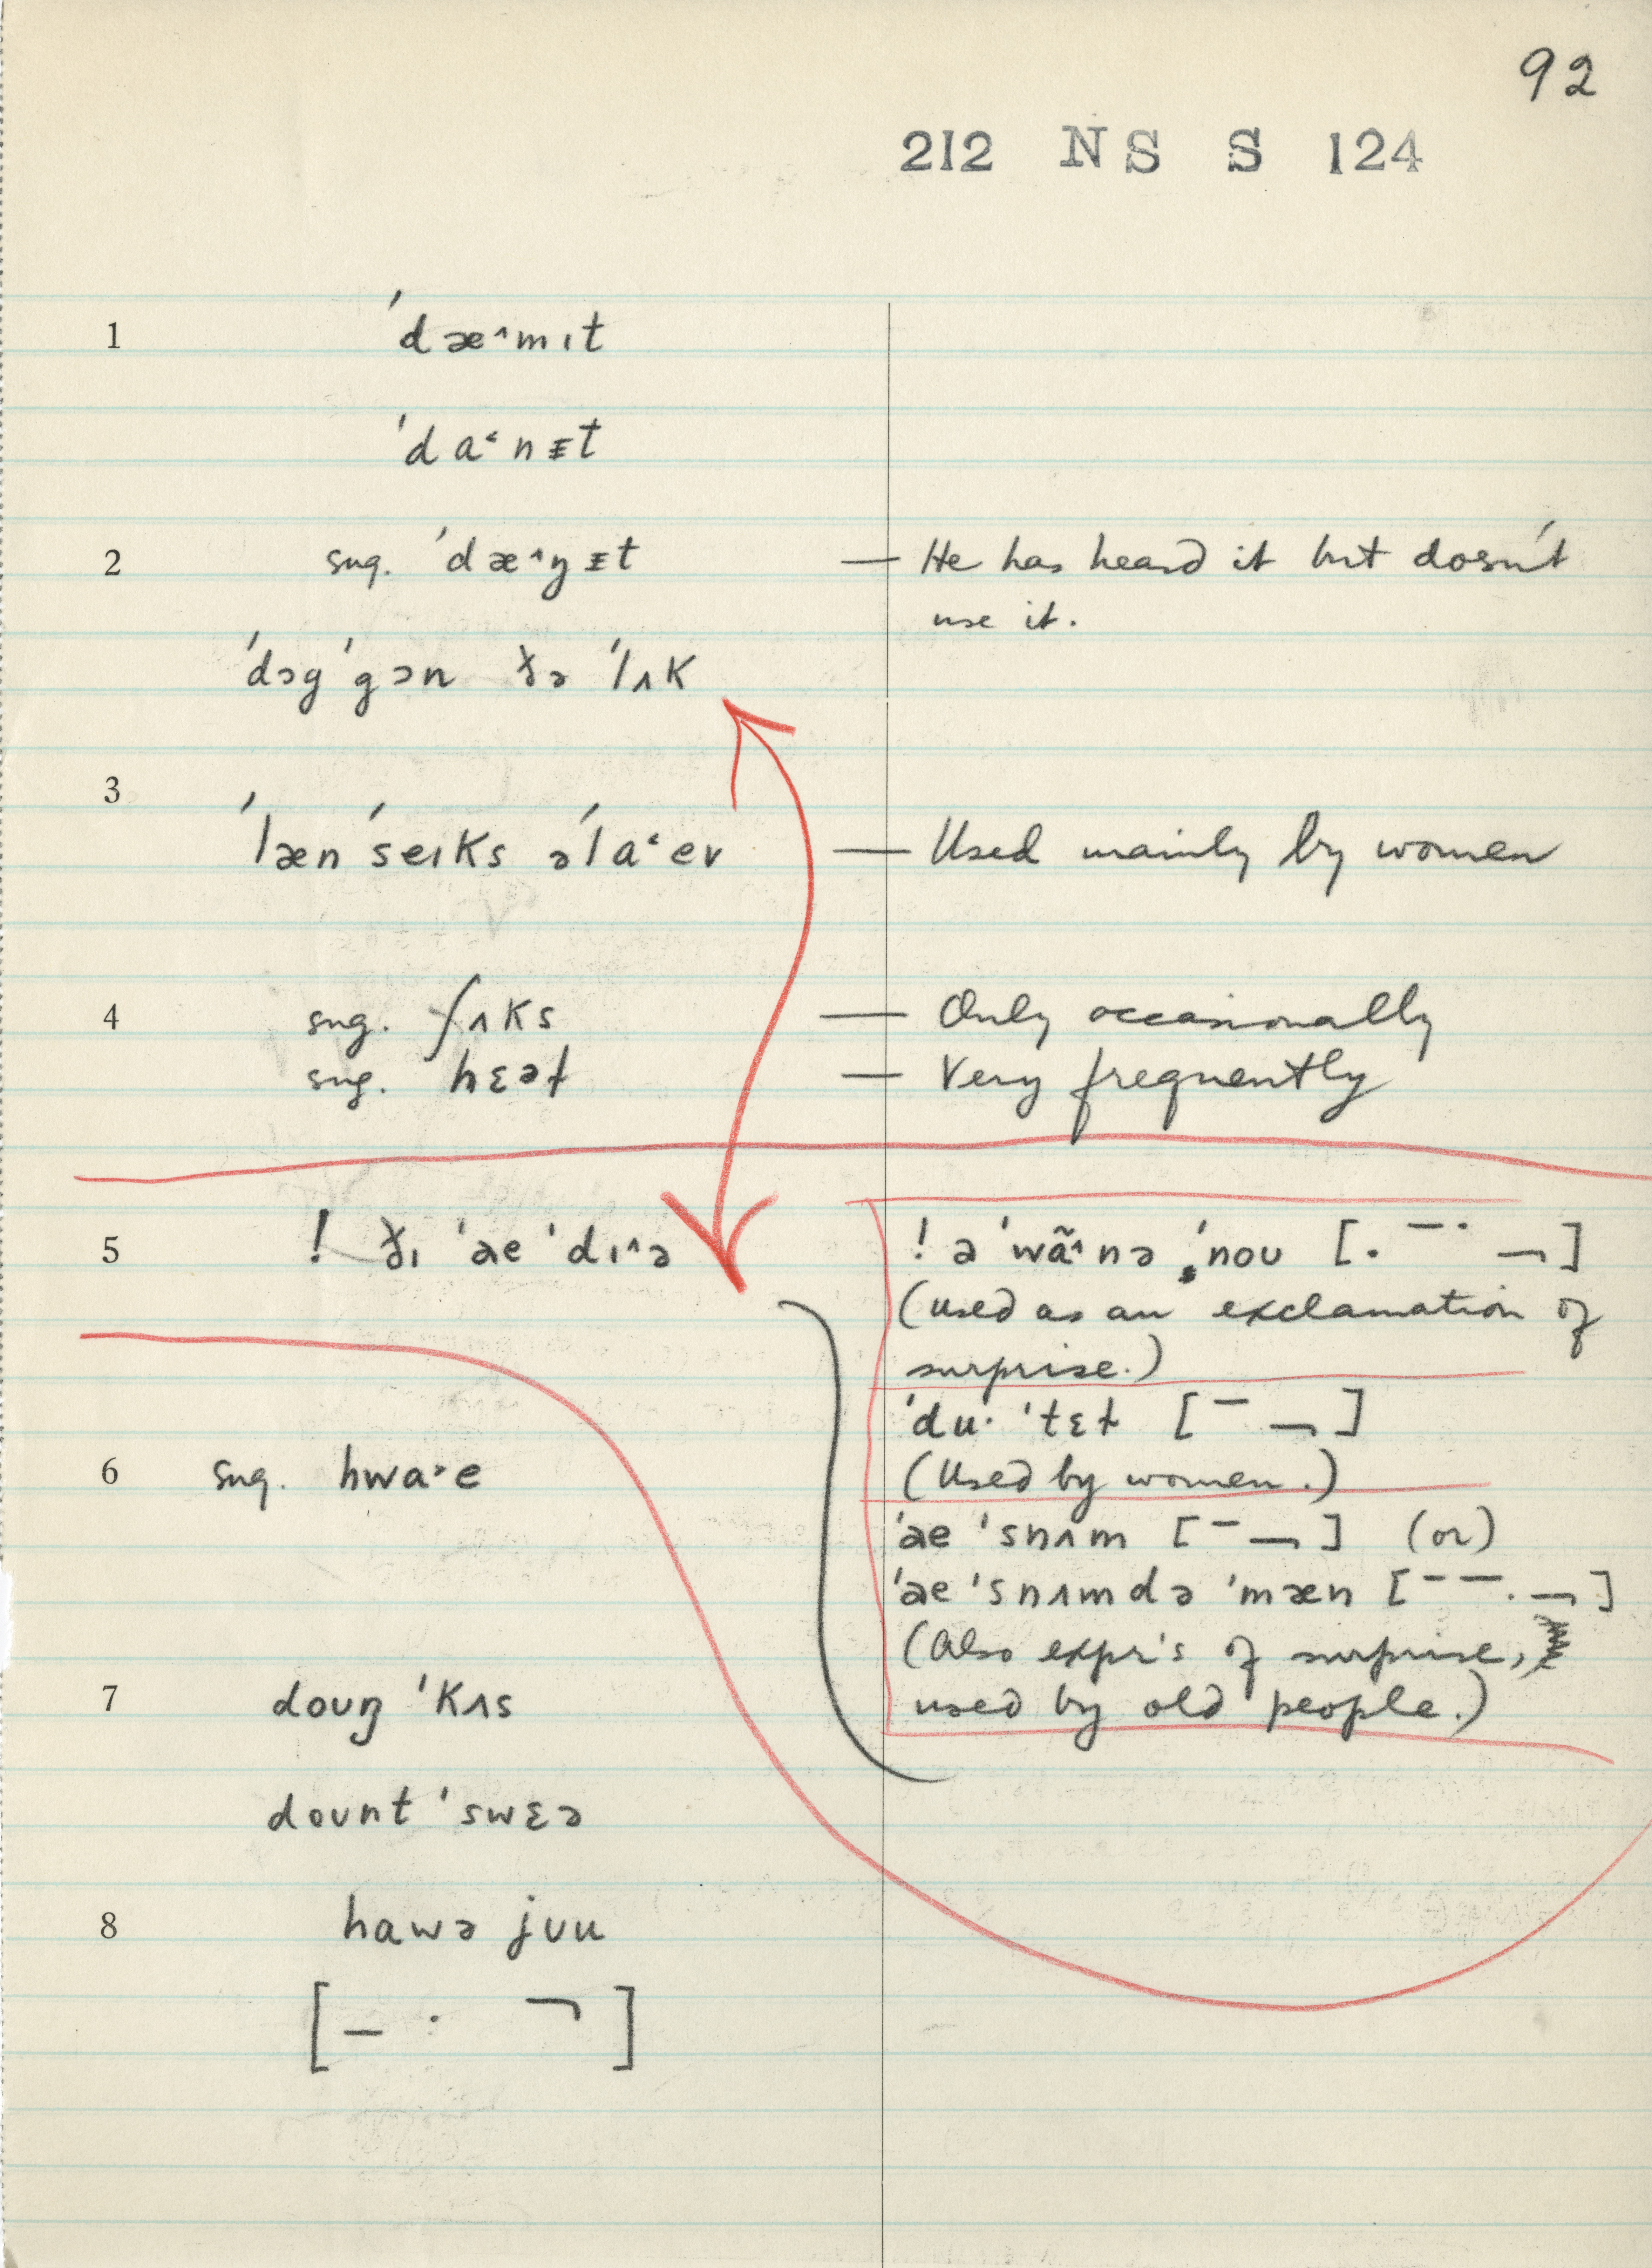 92
212 NS S 124
1 ˈdæ˄mɪt
ˈda˂nᵻt
2 sug. ˈdæ˄ŋᵻt — He has heard it but dosn't
use it.
ˈdɔgˈgɔn ðə ˈlʌk
3
ˈlænˈseɪks əˈla˂ev — Used mainly by women
4 sug. ʃʌks — Only occasionally
sug. hɛəɫ — Very frequently
5 ! ðɪ ˈae ˈdɪ˄ə
! ə ˈwã˄nə ˌˈnoʊ [. ‾ ˙ ¬]
(used as an exclamation of
surprise.)
ˈdu· ˈtɛɫ [‾ ¬]
(Used by women.)
6 sug. hwa˃e
ˈae ˈsnʌm [‾ ¬] (or)
ˈae ˈsnʌmdə ˈmæn [‾ ‾ . ¬]
(Also expr's of surprise,
used by old people.)
7 doʊŋ ˈkʌs
doʊnt ˈswɛə
8 hawə jʊu
[– · ¬]